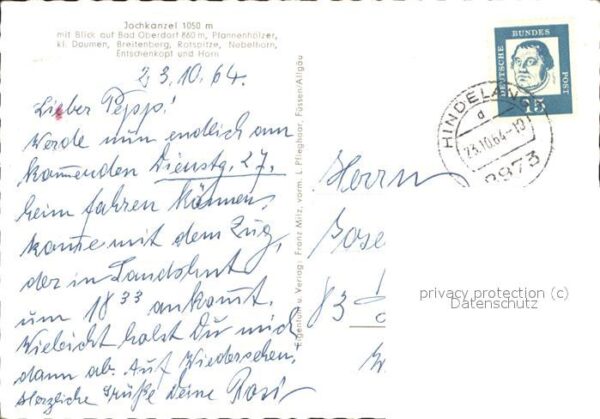 Jochkanzel 1050 m
mit Blick auf Bad Oberdorf 860 m, Pfannenhölzer,
kl. Daumen, Breitenberg, Rotspitze, Nebelhorn,
Entschenkopf und Horn
23.10.64.
Lieber Pepp!
Werde nun endlich am
kommenden Dienstg. 27.
heim fahren können,
komme mit dem Zug,
der in Landshut
um 18 33 ankomt.
Vieleicht holst Du mich
dann ab. Auf Wiedersehen,
Herzliche Grüße Deine Rosi
Eigentum u. Verlag: Franz Milz, vorm. L. Pfleghaar, Füssen/Allgäu
DEUTSCHE BUNDESPOST
15
HINDELANG
d
23.10.64-10
8973
Herrn
Jose
83
privacy protection (c)
Datenschutz